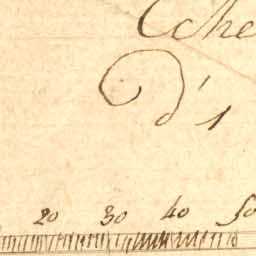 Eche
d'1
20 30 40 50